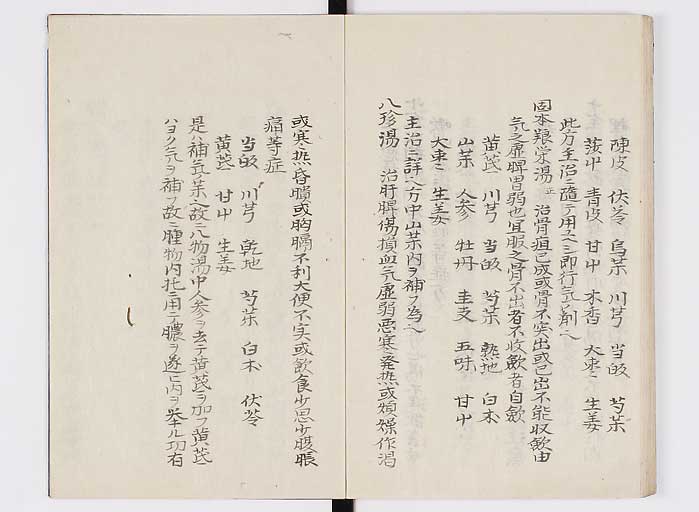 陳皮 伏苓 烏茱 川芎 当皈 芍茱
莪中 青皮 甘中 木香 大棗 生姜
此方主治ニ隨テ用ユ即行氣ノ剤也
固本養栄湯 治骨疽已成或骨不突出或已出不能収歛由
氣血虚脾胃弱也宜服之骨不出者不收歛者自歛
黄芪 川芎 当皈 芍茱 熟地 白朮
山茱 人参 牡丹 圭支 五味 甘中
大棗 生姜
主治ニ詳也方中山茱内ヲ補フ為也
八珍湯 治肝脾傷損血氣虚弱悪寒発热或煩燥作渇
或寒热昏聵或胸膈不利大便不实或飲食少思少腹脹
痛等症
当皈 川芎 乾地 芍茱 白朮 伏苓
黄芪 甘中 生姜
是ハ補氣茱故ニ八物湯中人参ヲ去テ黄芪ヲ加フ黄芪
ハヨク氣ヲ補フ故ニ腫物内托ニ用テ膿ヲ遂ヒ肉ヲ挙ル功有